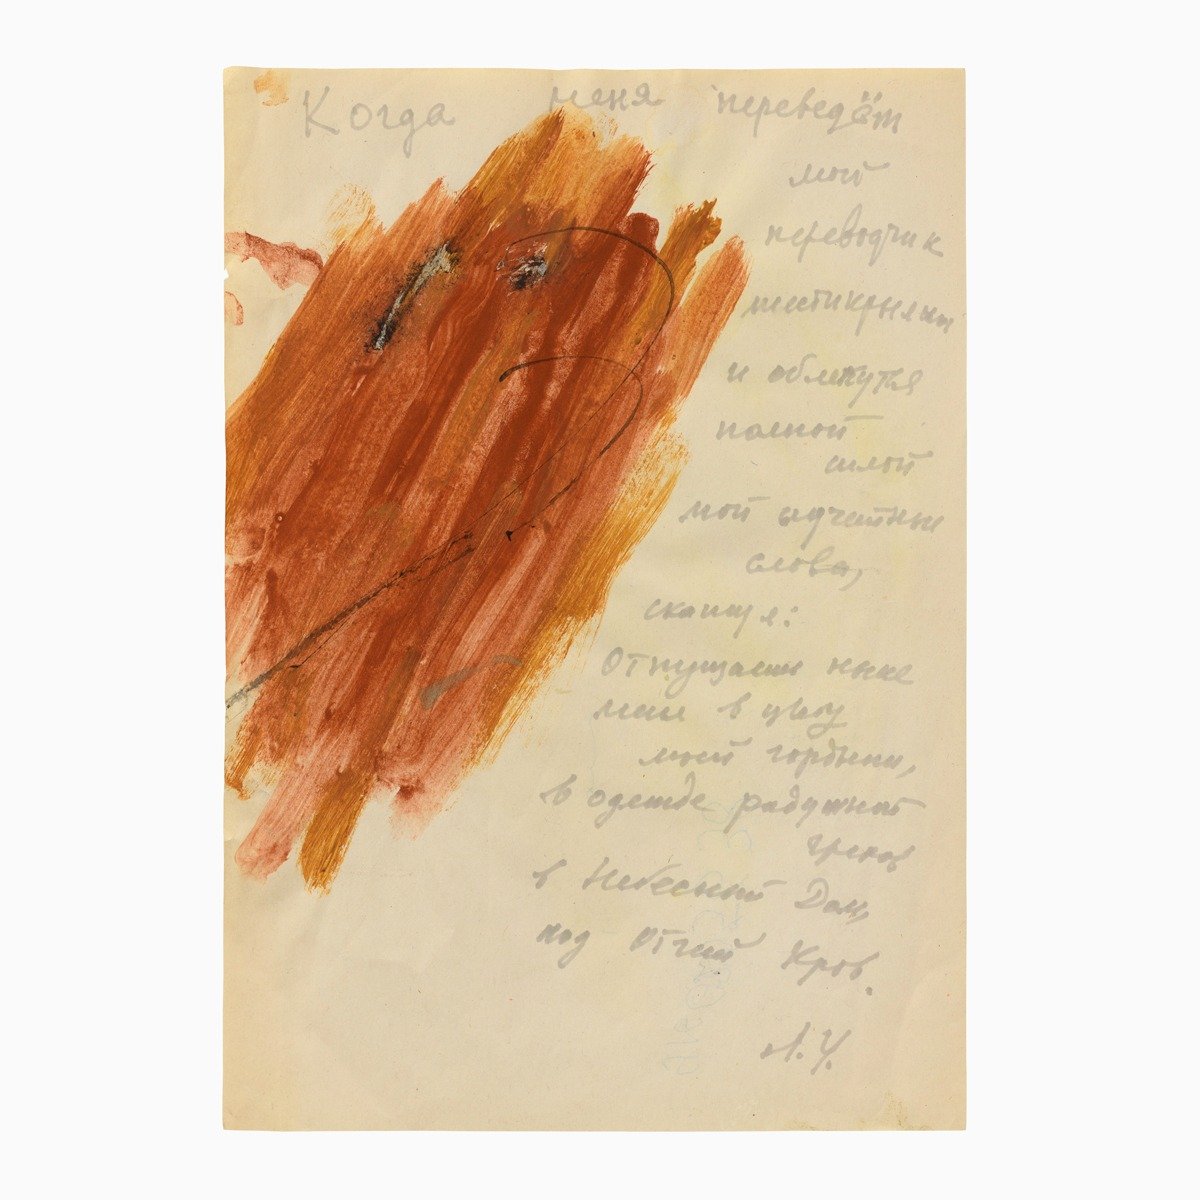 Когда меня переведёт
мой
переводчик
шестикрылый
и облекутся
полной
силой
мои
слова,
скажу я:
Отпущаеши ныне
меня в цвету
моей гордыни,
в одежде радужной
грехов
в Небесный Дом,
под Отчий Кров.
А.Ч.